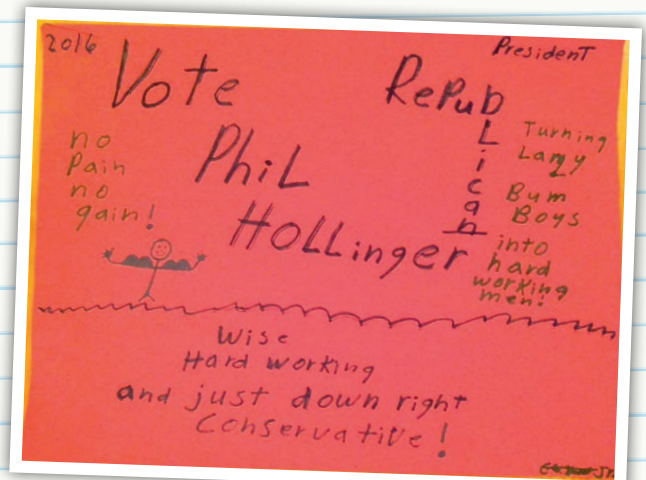 2016
President
Vote
RePubLican
no
Pain
no
gain!
PhiL
HOLLinger
Turning
Lazy
Bum
Boys
into
hard
working
men!
Wise
Hard working
and just down right
Conservative!